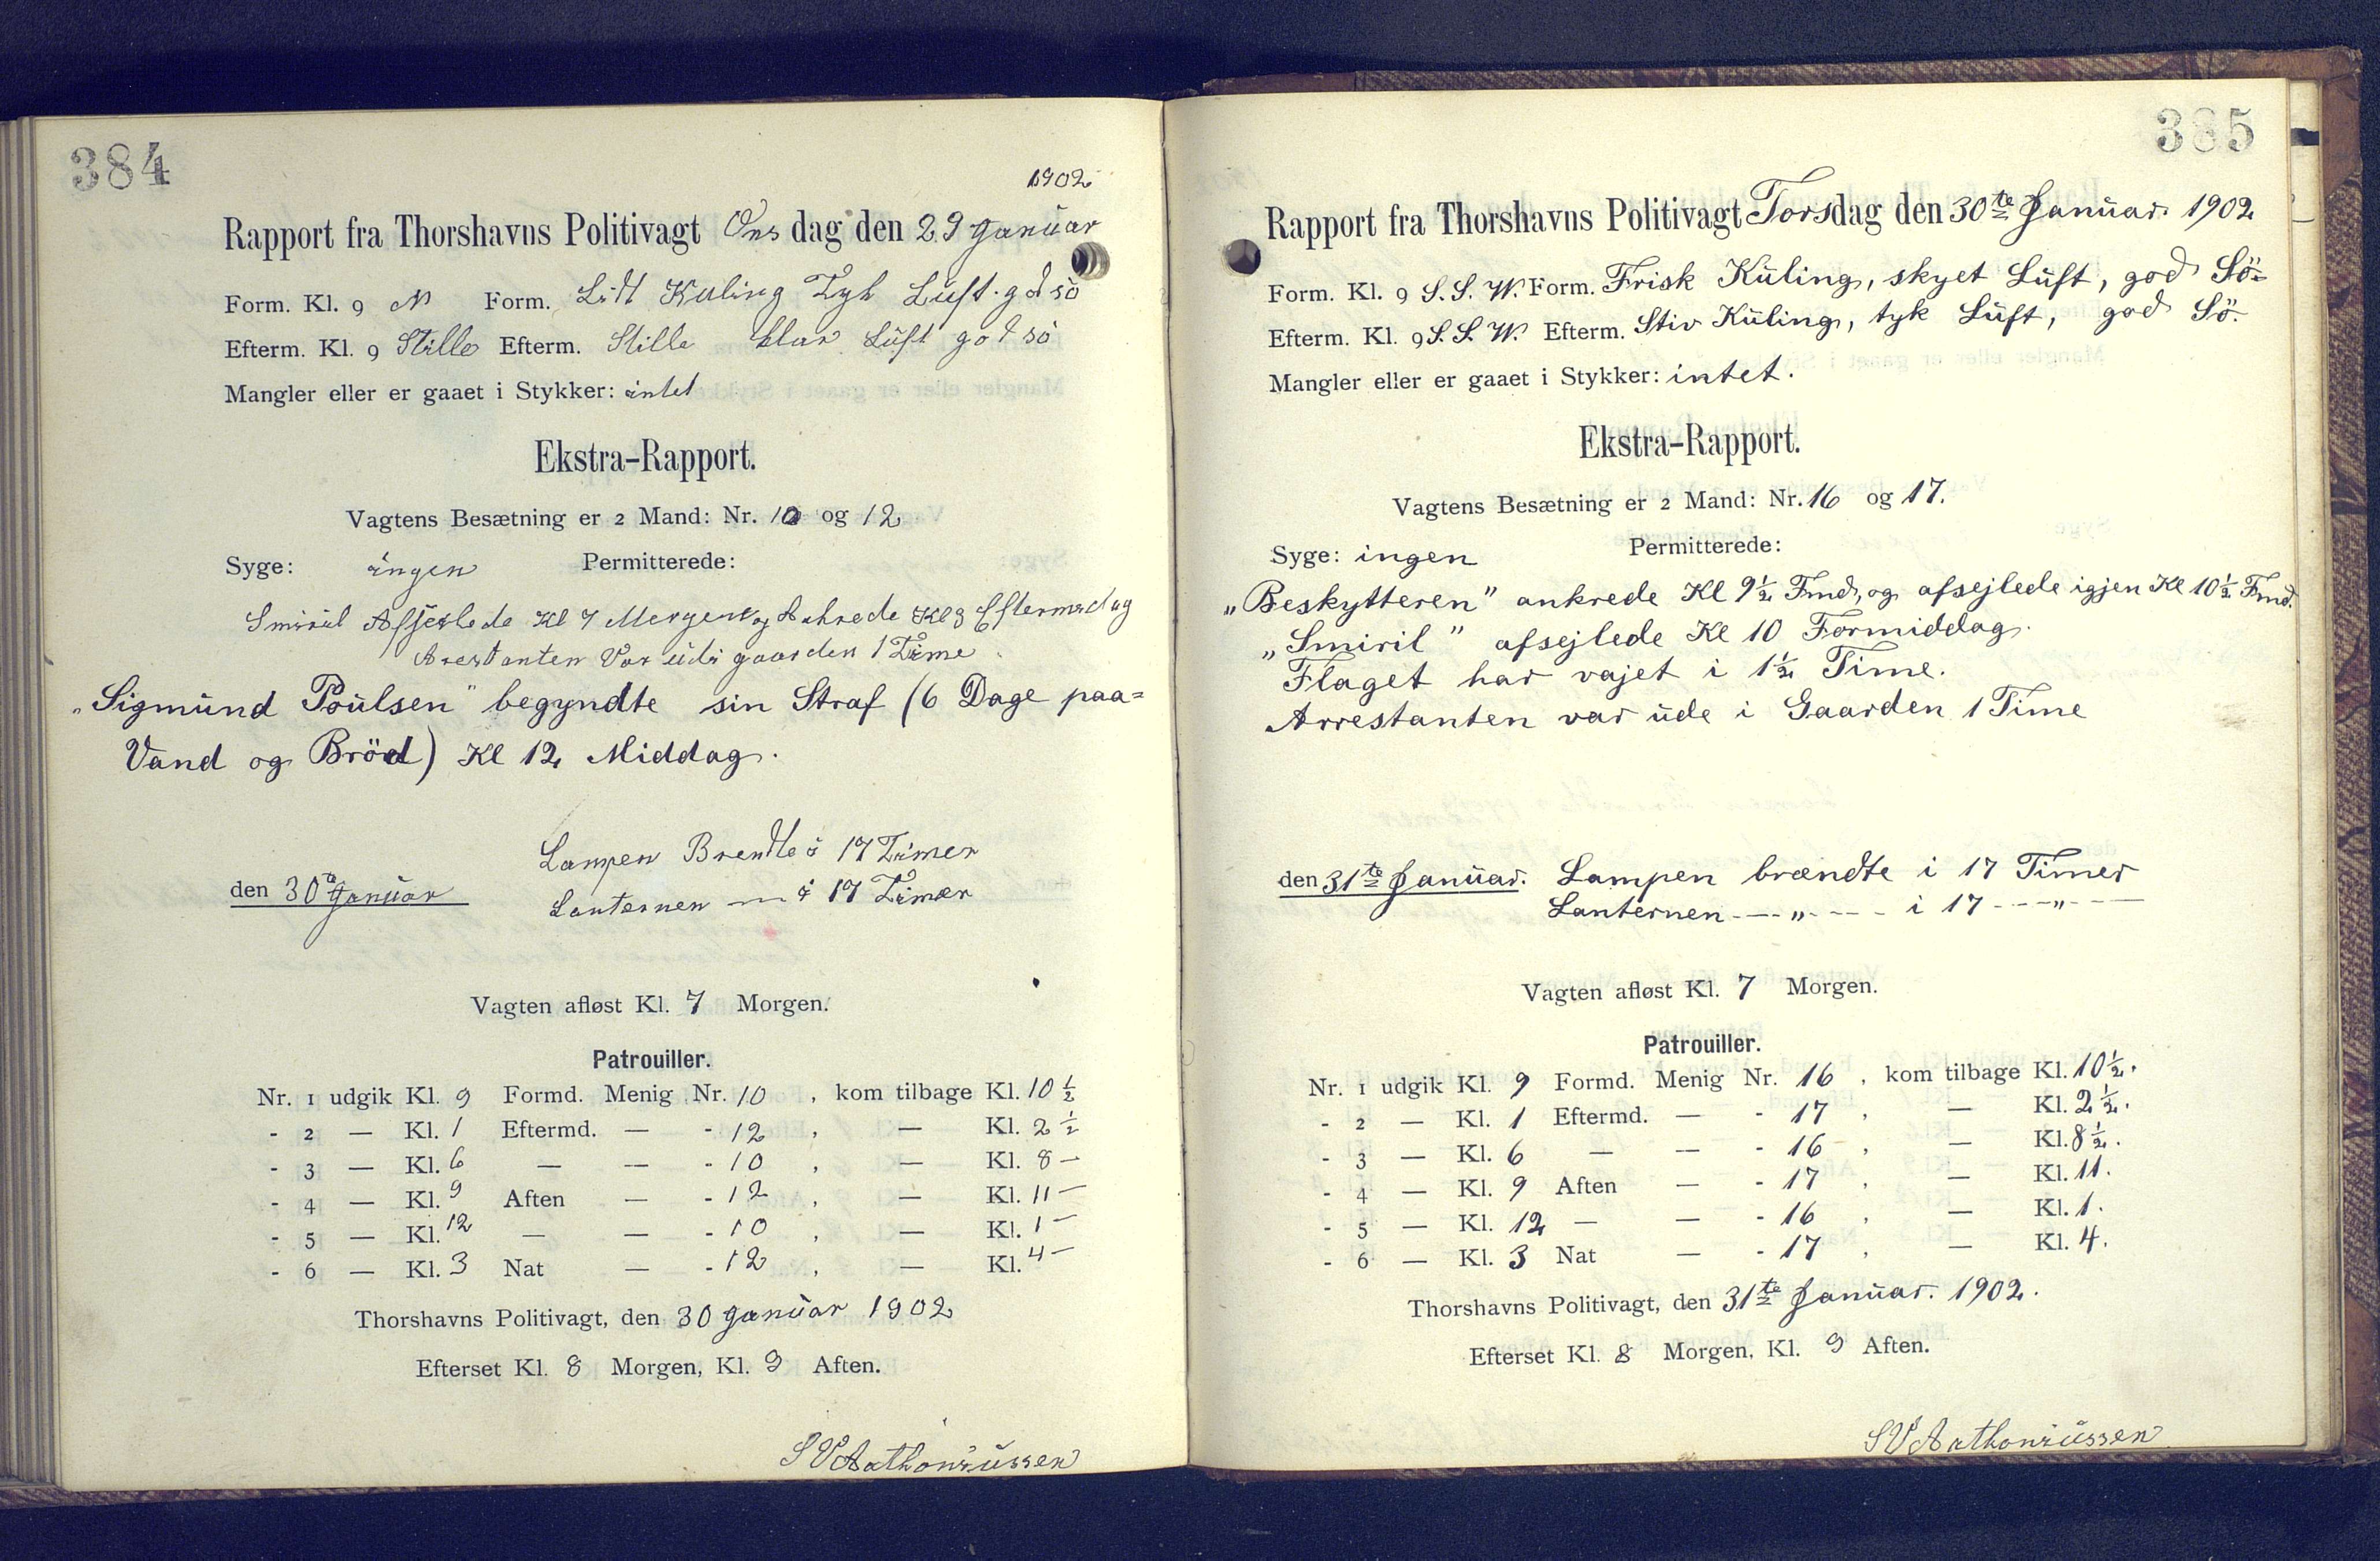 384
1902
Rapport fra Thorshavns Politivagt Onsdag den 29 Januar
Form. Kl. 9 N Form. Lidt Kuling Tyk Luft. god sö
Efterm. Kl. 9 Stille Efterm. Stille klar Luft god sö
Mangler eller er gaaet i Stykker: intet
Ekstra-Rapport.
Vagtens Besætning er 2 Mand: Nr. 10 og 12
Syge: ingen Permitterede:
Smiril Afsejlede Kl 7 Morgen og Ankrede Kl 3 Eftermedag
Arestanten Var udi gaarden 1 Time
"Sigmund Poulsen" begyndte sin Straf (6 Dage paa=
Vand og Bröd) Kl 12 Middag.
Lampen Brendte i 17 Timer
den 30te Januar Lanternen — i 17 Timer
Vagten afløst Kl. 7 Morgen.
Patrouiller.
Nr. 1 udgik Kl. 9 Formd. Menig Nr. 10, kom tilbage Kl. 10 ½
- 2 — Kl. 1 Eftermd. — - 12, — Kl. 2 ½
- 3 — Kl. 6 — — - 10, — Kl. 8 –
- 4 — Kl. 9 Aften — - 12, — Kl. 11 –
- 5 — Kl. 12 — — - 10, — Kl. 1 –
- 6 — Kl. 3 Nat — - 12, — Kl. 4 –
Thorshavns Politivagt, den 30 Januar 1902
Efterset Kl. 8 Morgen, Kl. 9 Aften.
SVAnthoniussen
385
Rapport fra Thorshavns Politivagt Torsdag den 30te Januar. 1902
Form. Kl. 9 S.S.W. Form. Frisk Kuling, skyet Luft, god Sö-
Efterm. Kl. 9 S.S.W. Efterm. Stiv Kuling, tyk Luft, god Sö.
Mangler eller er gaaet i Stykker: intet.
Ekstra-Rapport.
Vagtens Besætning er 2 Mand: Nr. 16 og 17.
Syge: ingen Permitterede:
"Beskytteren" ankrede Kl 9½ Fmd, og afsejlede igjen Kl 10½ Fmd.
"Smiril" afsejlede Kl 10 Formiddag.
Flaget har vajet i 1½ Time.
Arrestanten var ude i Gaarden 1 Time
den 31te Januar. Lampen brændte i 17 Timer
Lanternen - — " - — - i 17 - — " - —
Vagten afløst Kl. 7 Morgen.
Patrouiller.
Nr. 1 udgik Kl. 9 Formd. Menig Nr. 16, kom tilbage Kl. 10½.
- 2 — Kl. 1 Eftermd. — - 17, — Kl. 2½.
- 3 — Kl. 6 — — - 16, — Kl. 8½.
- 4 — Kl. 9 Aften — - 17, — Kl. 11.
- 5 — Kl. 12 — — - 16, — Kl. 1.
- 6 — Kl. 3 Nat — - 17, — Kl. 4.
Thorshavns Politivagt, den 31te Januar. 1902.
Efterset Kl. 8 Morgen, Kl. 9 Aften.
SVAnthoniussen